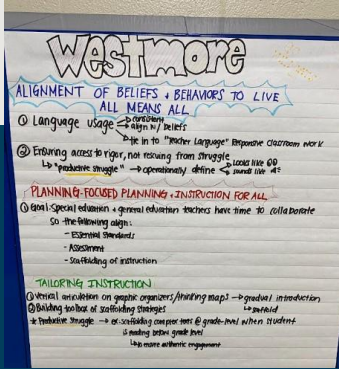 Westmore
ALIGNMENT OF BELIEFS + BEHAVIORS TO LIVE
ALL MEANS ALL
① Language usage → consistent
→ align w/ beliefs
→ tie in to "Teacher Language" Responsive Classroom work
② Ensuring access to rigor, not rescuing from struggle
↳ "productive struggle" → operationally define < looks like
sounds like
PLANNING-FOCUSED PLANNING + INSTRUCTION FOR ALL
① Goal: Special education + general education teachers have time to collaborate
so the following align:
- Essential Standards
- Assessment
- Scaffolding of instruction
TAILORING INSTRUCTION
① Vertical articulation on graphic organizers/thinking maps → gradual introduction
② Building toolbox of scaffolding strategies ↳ scaffold
* Productive Struggle → ex: scaffolding complex texts @ grade-level when student
is reading below grade level
↳ is more authentic engagement